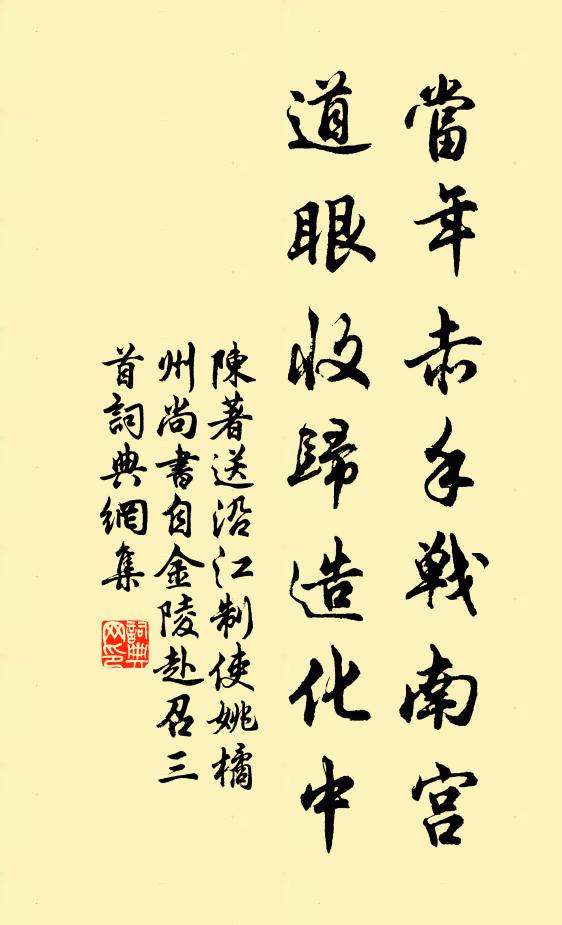 當年赤手戰南宮
道眼收歸造化中
陳著送沿江制使姚橘
州尚書自金陵赴召三
首詞典網集
詞典
网印